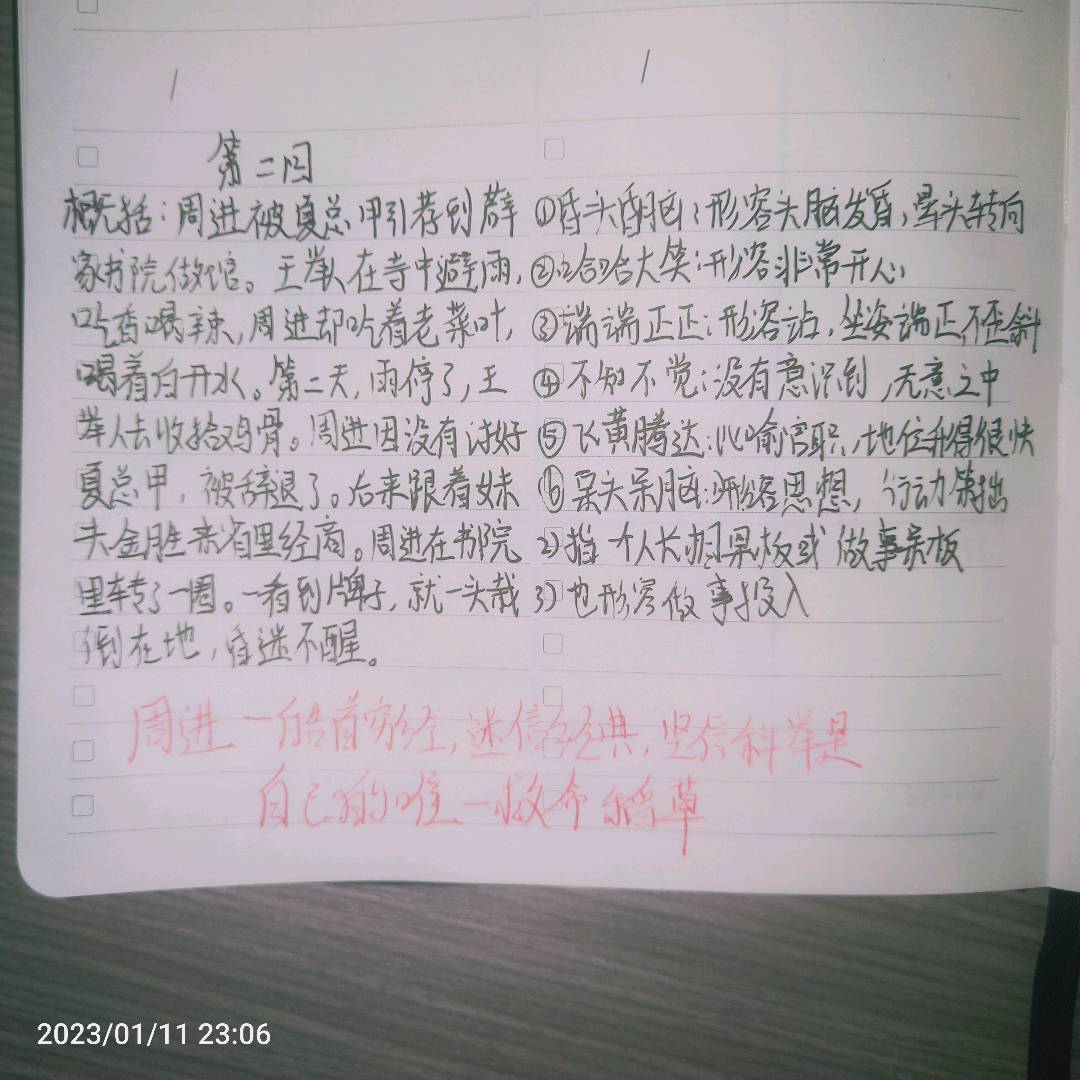 第二回
概括：周进被夏总甲引荐到薛
家书院做馆。王举人在寺中避雨，
吃香喝辣，周进却吃着老菜叶，
喝着白开水。第二天，雨停了，王
举人去收拾鸡骨。周进因没有讨好
夏总甲，被辞退了。后来跟着妹
夫金胜来省里经商。周进在书院
里转了一圈。一看到牌子，就一头栽
倒在地，昏迷不醒。
①昏头昏脑：形容头脑发昏，晕头转向
②哈哈大笑：形容非常开心
③端端正正：形容站，坐姿端正，不歪斜
④不知不觉：没有意识到，无意之中
⑤飞黄腾达：比喻官职，地位升得很快
⑥呆头呆脑：形容思想，行动笨拙
2)指个人长相呆板或做事呆板
3)也形容做事投入
周进一皓首穷经，迷信经典，坚信科举是
自己的唯一救命稻草
2023/01/11 23:06